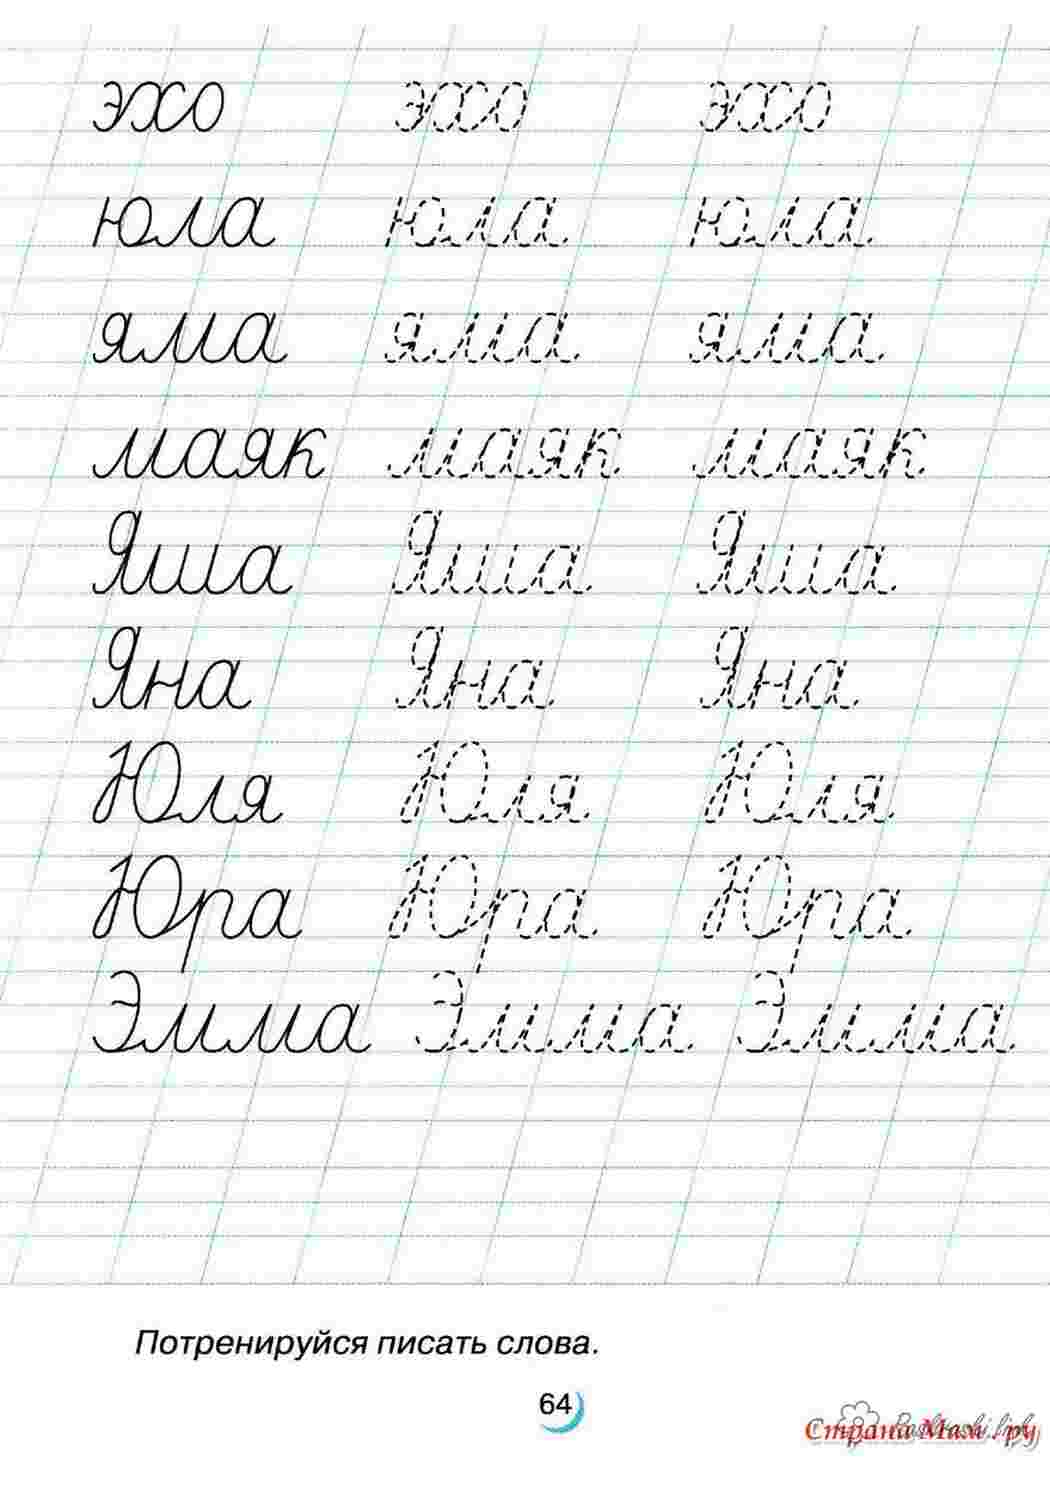 эхо эхо эхо
юла юла юла
яма яма яма
маяк маяк маяк
Яша Яша Яша
Яна Яна Яна
Юля Юля Юля
Юра Юра Юра
Эмма Эмма Эмма
Потренируйся писать слова.
64
Страна Мам.ру